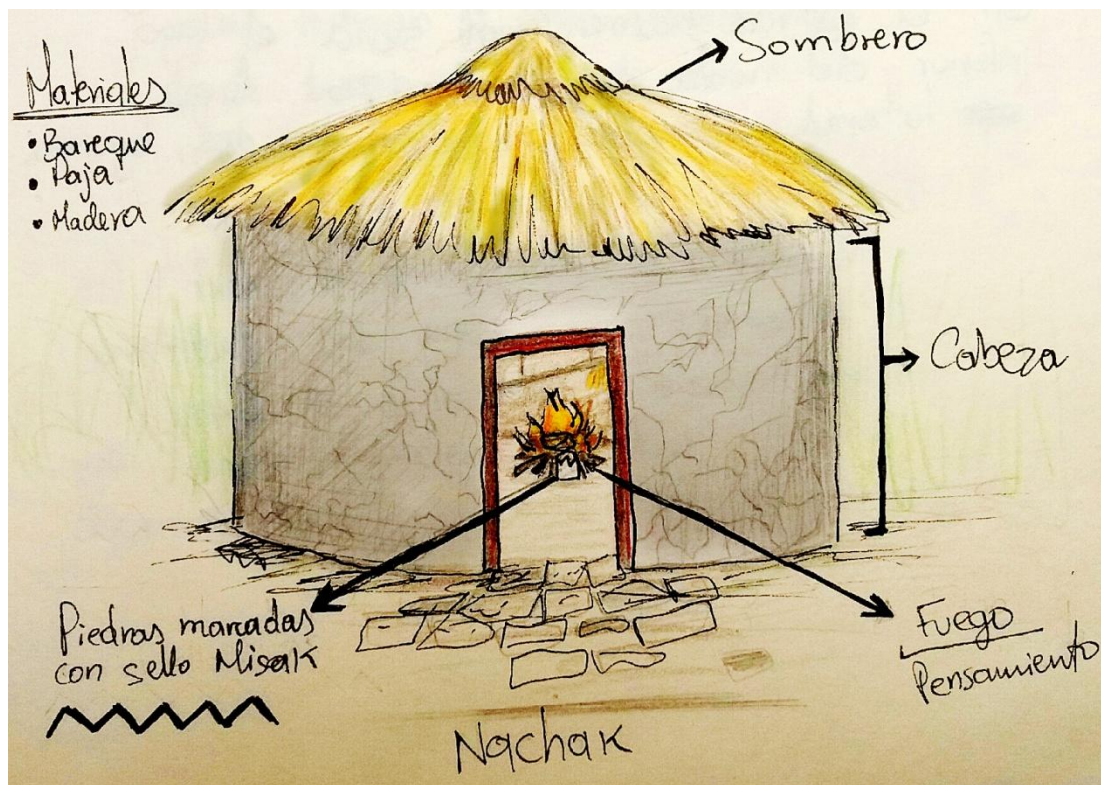 Materiales
• Bareque
• Paja
• Madera
Sombrero
Cabeza
Piedras marcadas
con sello Misak
Fuego
Pensamiento
Nachak